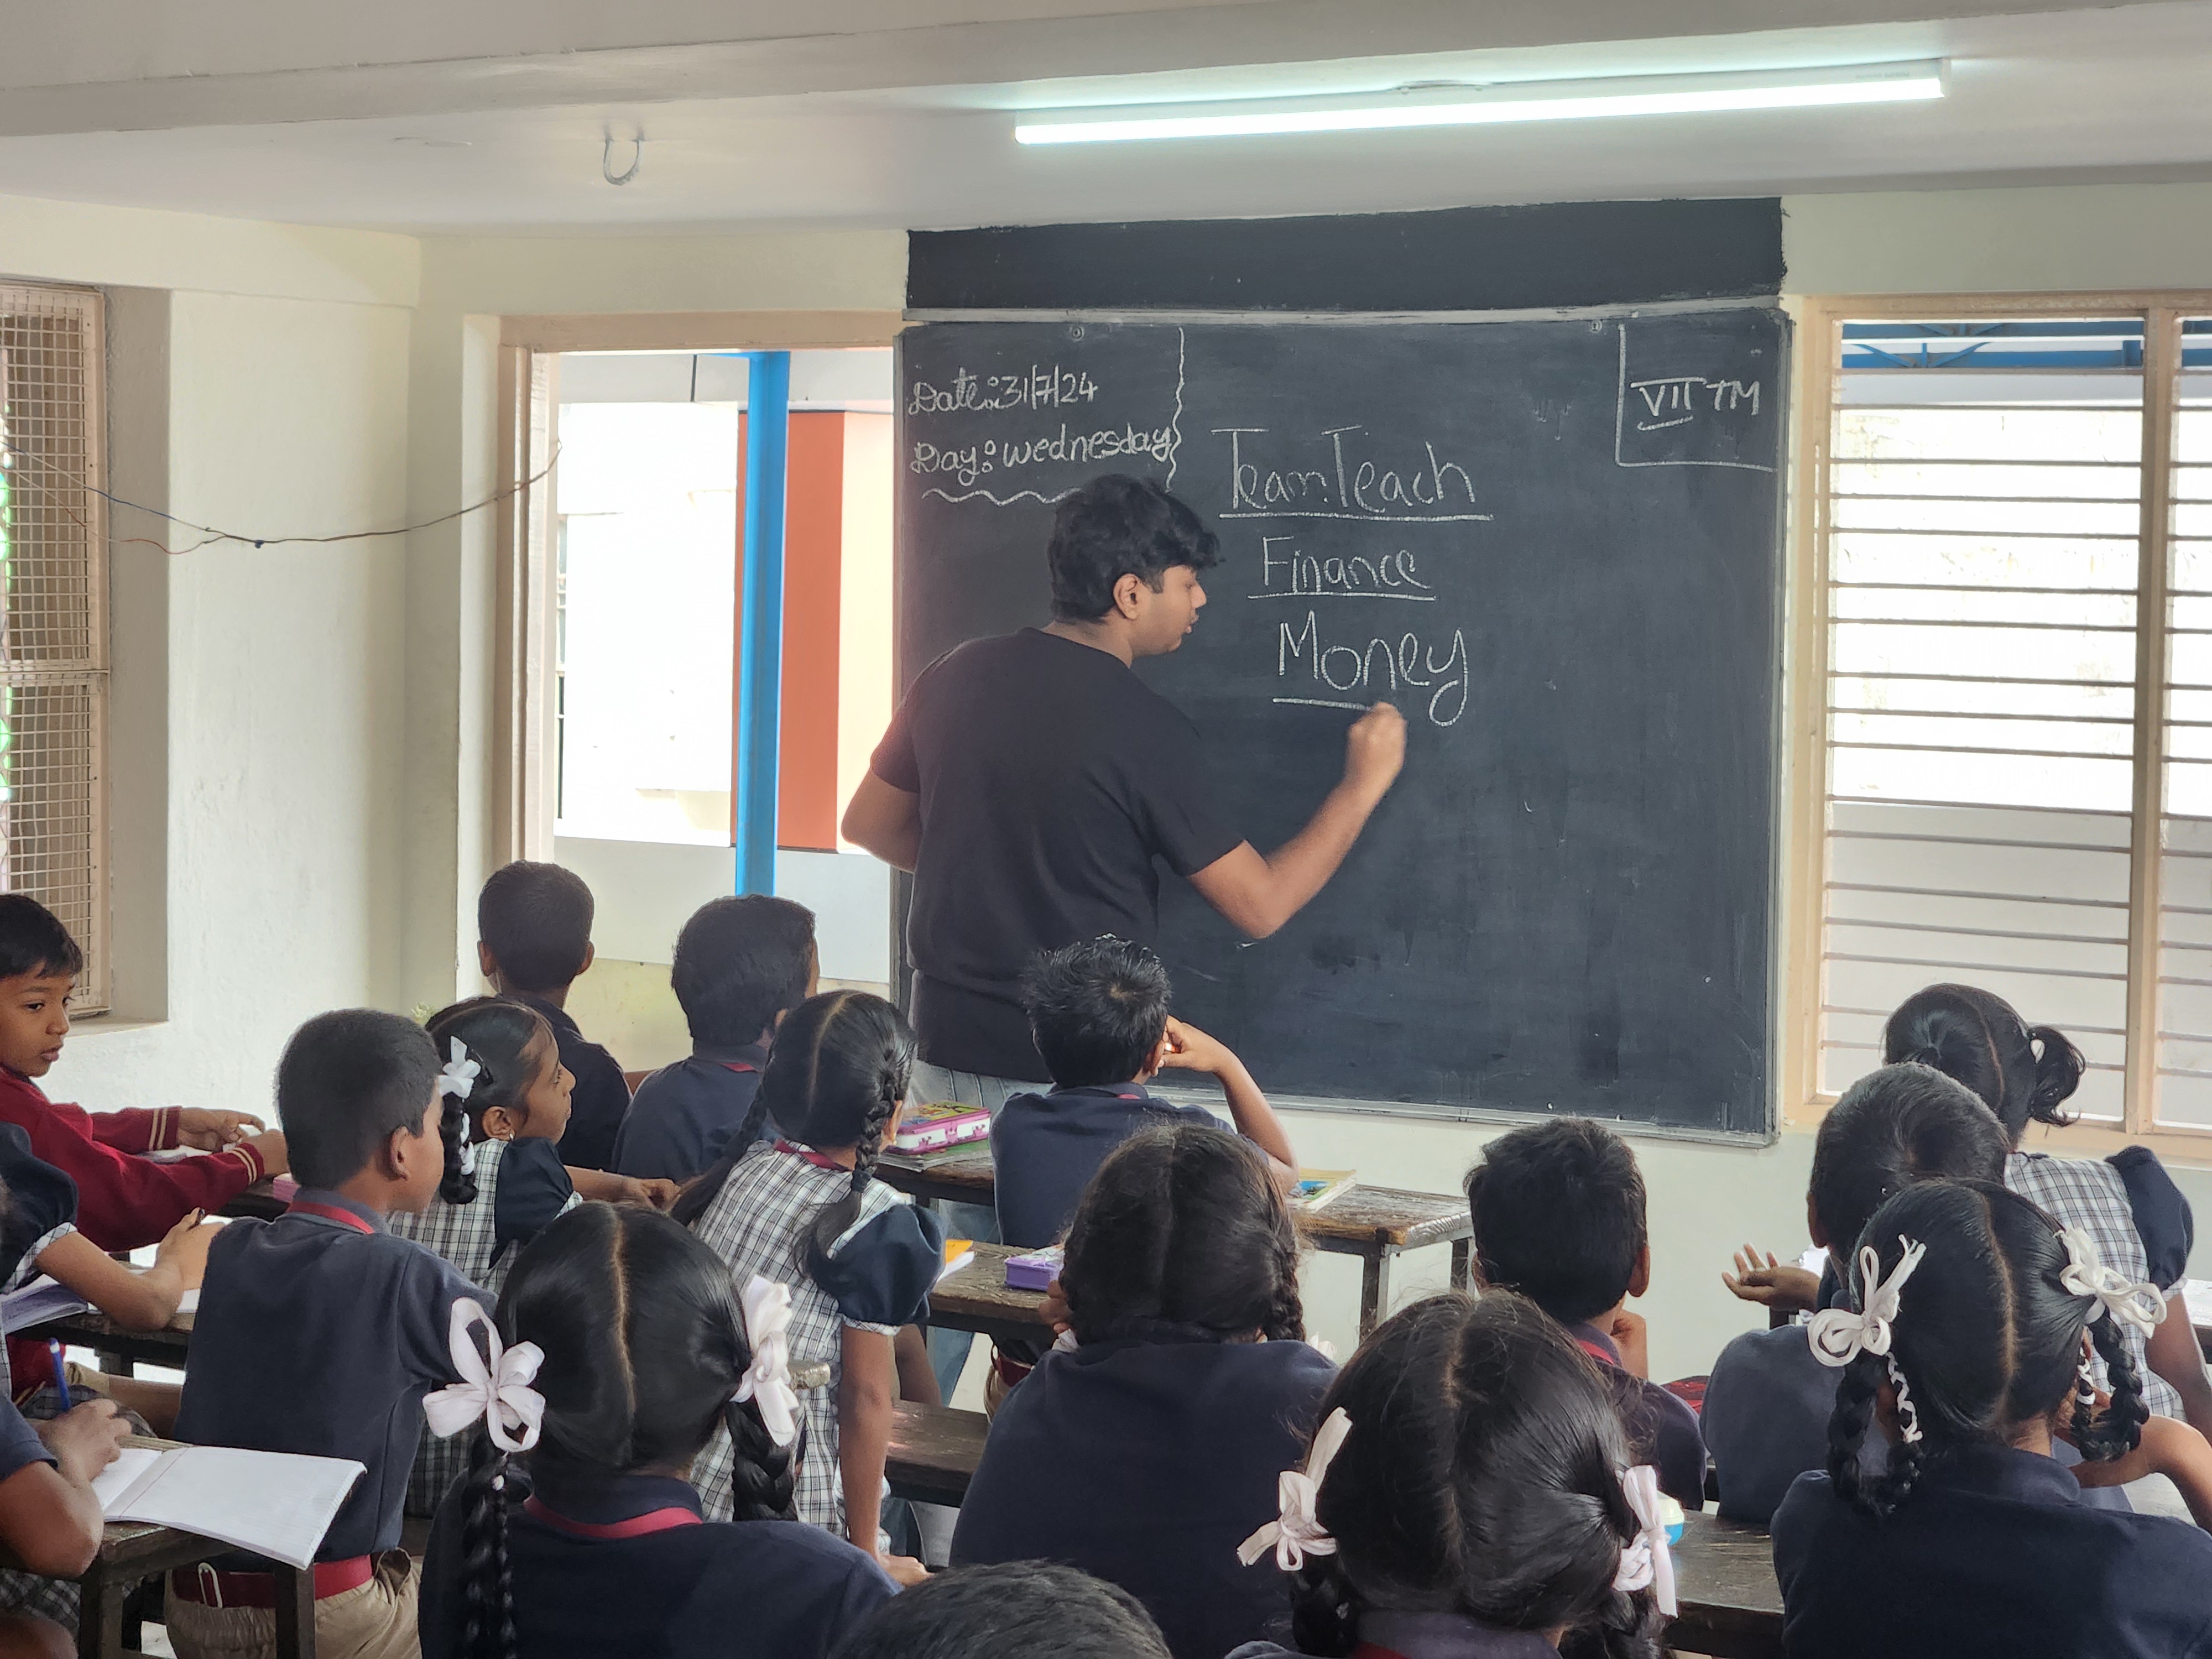 Date:31/7/24
Day: Wednesday
VII TM
Team.Teach
Finance
Money